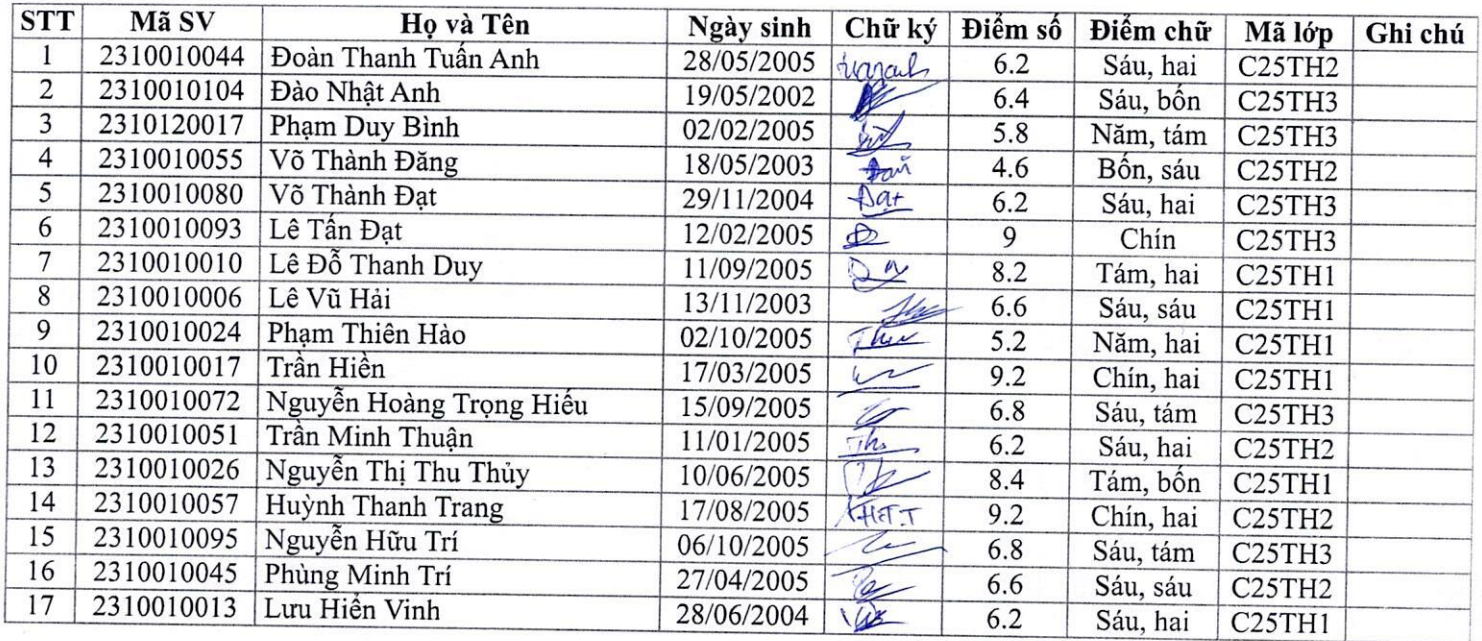 STT Mã SV Họ và Tên Ngày sinh Chữ ký Điểm số Điểm chữ Mã lớp Ghi chú
1 2310010044 Đoàn Thanh Tuấn Anh 28/05/2005 6.2 Sáu, hai C25TH2
2 2310010104 Đào Nhật Anh 19/05/2002 6.4 Sáu, bốn C25TH3
3 2310120017 Phạm Duy Bình 02/02/2005 5.8 Năm, tám C25TH3
4 2310010055 Võ Thành Đăng 18/05/2003 4.6 Bốn, sáu C25TH2
5 2310010080 Võ Thành Đạt 29/11/2004 Đạt 6.2 Sáu, hai C25TH3
6 2310010093 Lê Tấn Đạt 12/02/2005 9 Chín C25TH3
7 2310010010 Lê Đỗ Thanh Duy 11/09/2005 8.2 Tám, hai C25TH1
8 2310010006 Lê Vũ Hải 13/11/2003 6.6 Sáu, sáu C25TH1
9 2310010024 Phạm Thiên Hào 02/10/2005 5.2 Năm, hai C25TH1
10 2310010017 Trần Hiền 17/03/2005 9.2 Chín, hai C25TH1
11 2310010072 Nguyễn Hoàng Trọng Hiếu 15/09/2005 6.8 Sáu, tám C25TH3
12 2310010051 Trần Minh Thuận 11/01/2005 6.2 Sáu, hai C25TH2
13 2310010026 Nguyễn Thị Thu Thủy 10/06/2005 8.4 Tám, bốn C25TH1
14 2310010057 Huỳnh Thanh Trang 17/08/2005 9.2 Chín, hai C25TH2
15 2310010095 Nguyễn Hữu Trí 06/10/2005 6.8 Sáu, tám C25TH3
16 2310010045 Phùng Minh Trí 27/04/2005 6.6 Sáu, sáu C25TH2
17 2310010013 Lưu Hiển Vinh 28/06/2004 6.2 Sáu, hai C25TH1